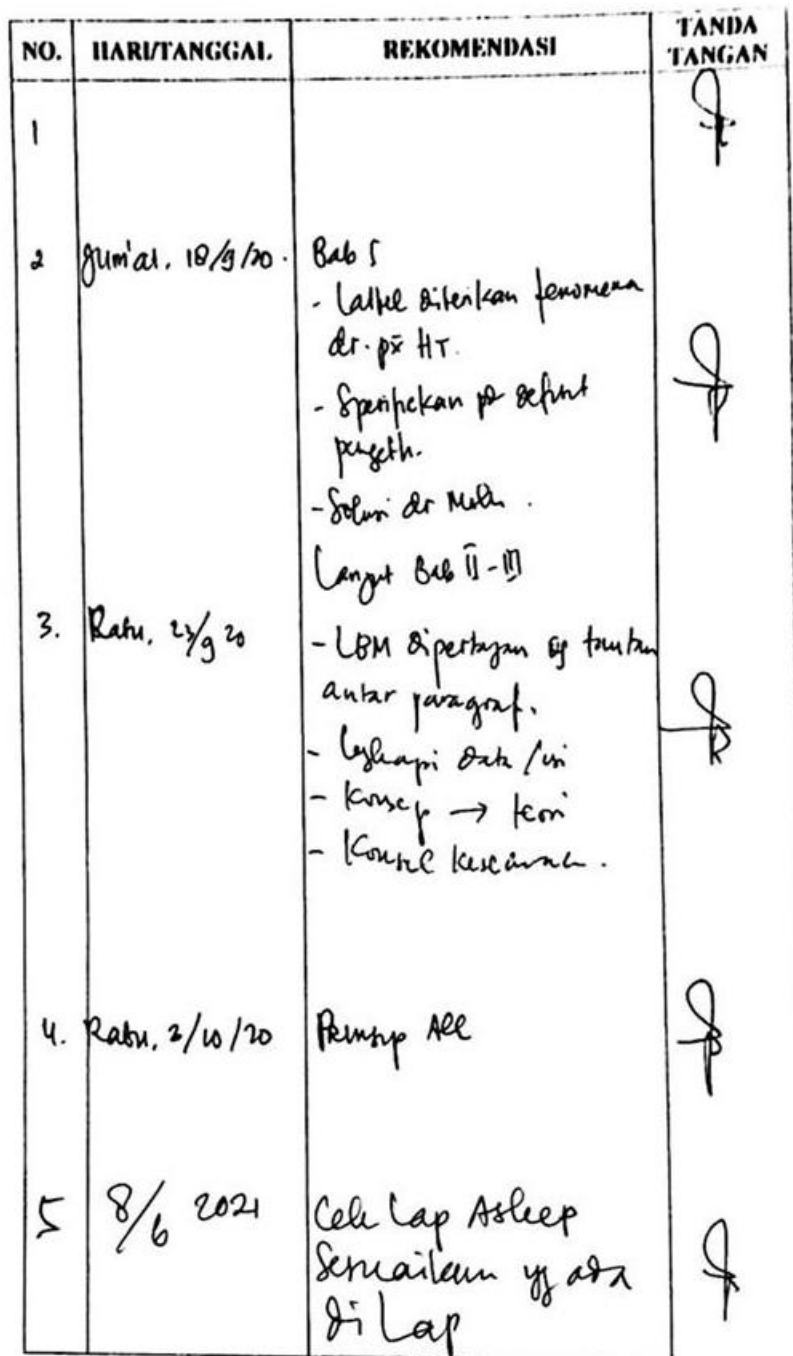 NO. HARI/TANGGAL REKOMENDASI TANDA TANGAN
1
2 Jum'at, 18/9/20. Bab
- diberikan fenomena
dr. px HT.
- Spesifikkan pd defisit
pengeth.
- Solusi dr
Lanjut Bab II-III
3. Rabu, 23/9 20 - LBM dipertajam tautan
antar paragraf.
- Lengkapi data / isi
- Konsep → teori
- Konsul
4. Rabu, /10/20 Prinsip ACC
5 8/6 2021 Cek Lap Askep
Sesuaikan yg ada
di Lap